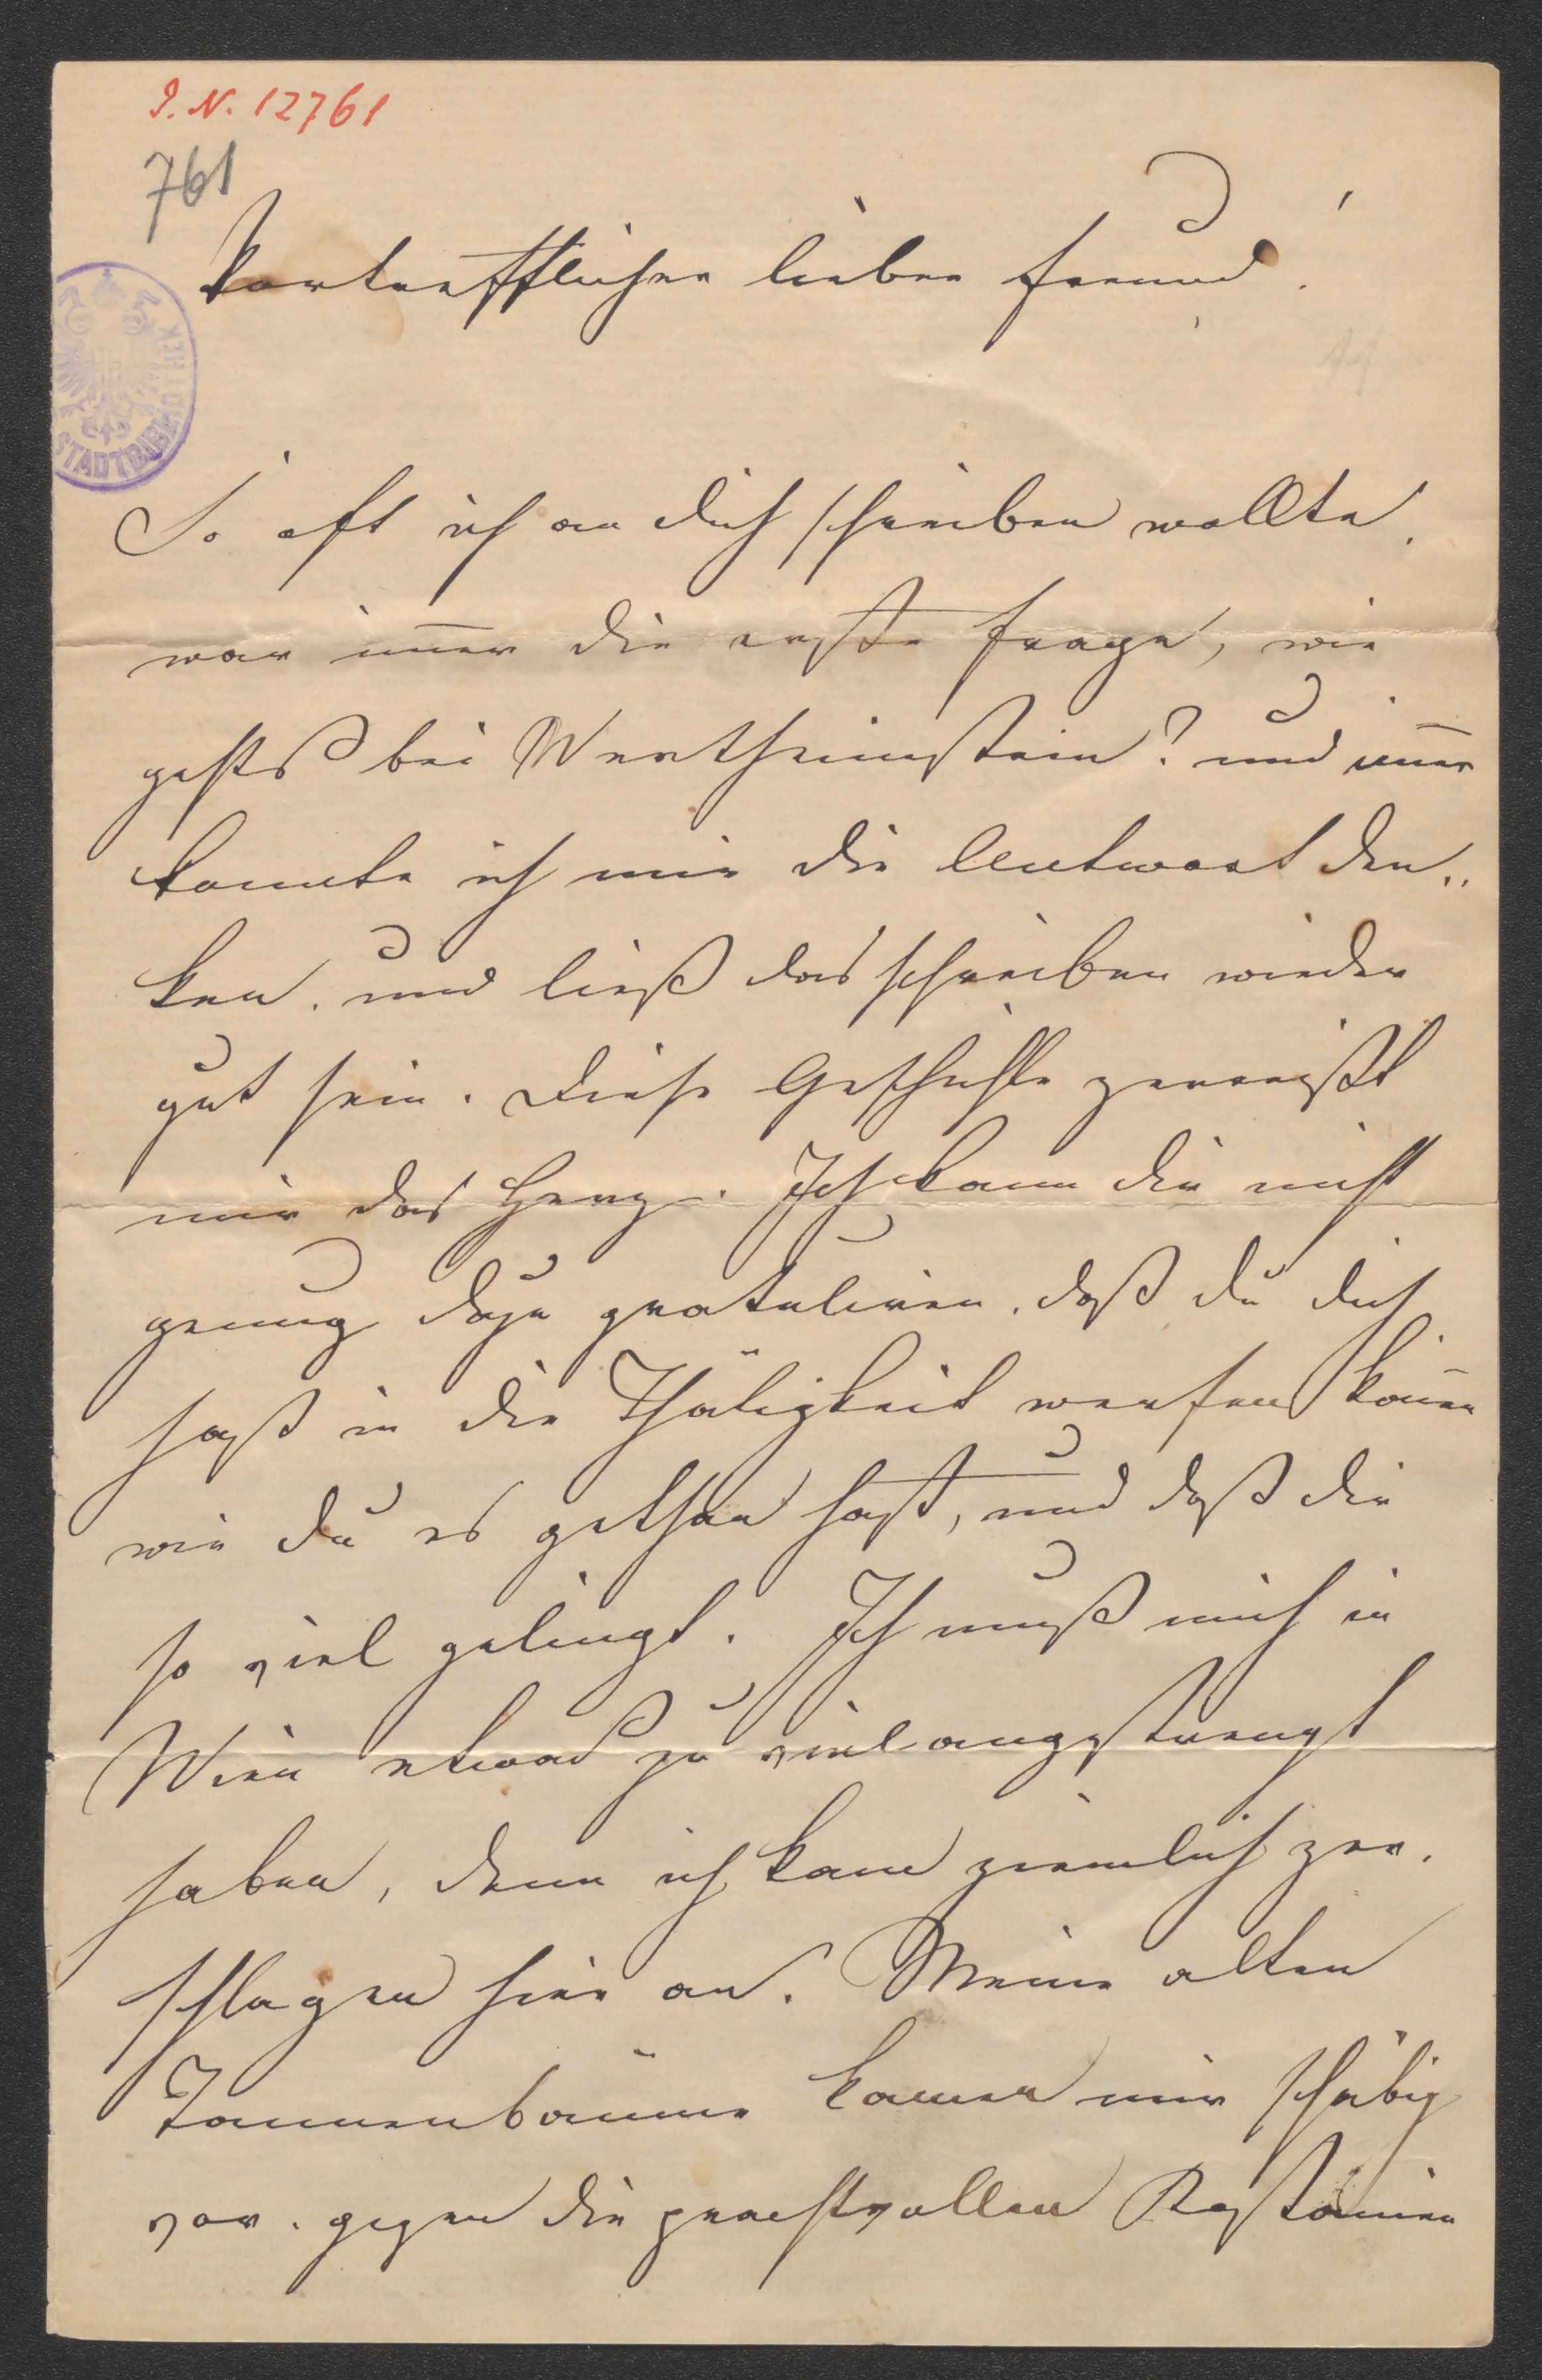 I. N. 12761
761
Vortrefflicher lieber Freund!
STADTBIBLIOTHEK
So oft ich an dich schreiben wollte,
war im̅er die erste Frage, wie
gehts bei Wertheimstein? und im̅er
konnte ich mir die Antwort den„
ken, und ließ das schreiben wieder
gut sein. Diese Geschichte zerreißt
mir das Herz. Ich kann dir nicht
genug dazu gratuliren, daß du dich
hast in die Thätigkeit werfen kön̅en
wie du es gethan hast, und daß dir
so viel gelingt. Ich muß mich in
Wien etwas zu viel angestrengt
haben, denn ich kam ziemlich zer„
schlagen hier an. Meine alten
Tannenbäume kamen mir schäbig
vor, gegen die prachtvollen Kastanien